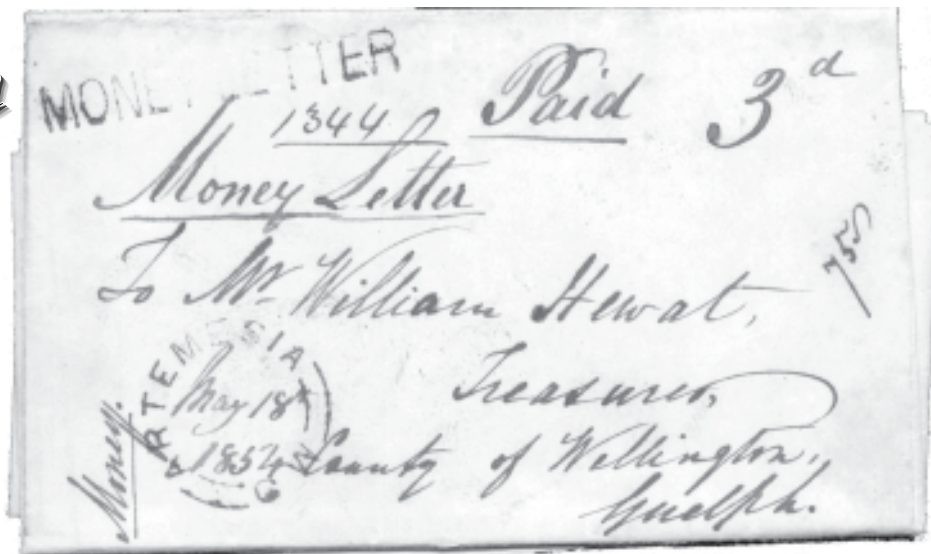 MONEY LETTER
Paid 3d
1344
Money Letter
To Mr William Hewat,
Treasurer,
County of Wellington,
Guelph.
ARTEMESIA
May 18th
1854
Money.